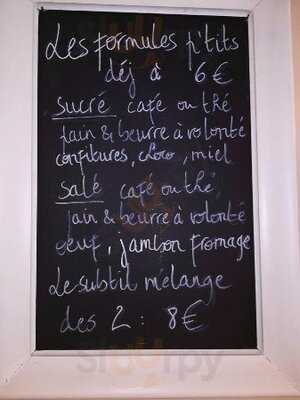 Les formules p'tits
déj à 6€
sucré café ou thé
pain & beurre à volonté
confitures, choco, miel
salé café ou thé
pain & beurre à volonté
oeuf, jambon fromage
Le subtil mélange
des 2 : 8€
sluurpy